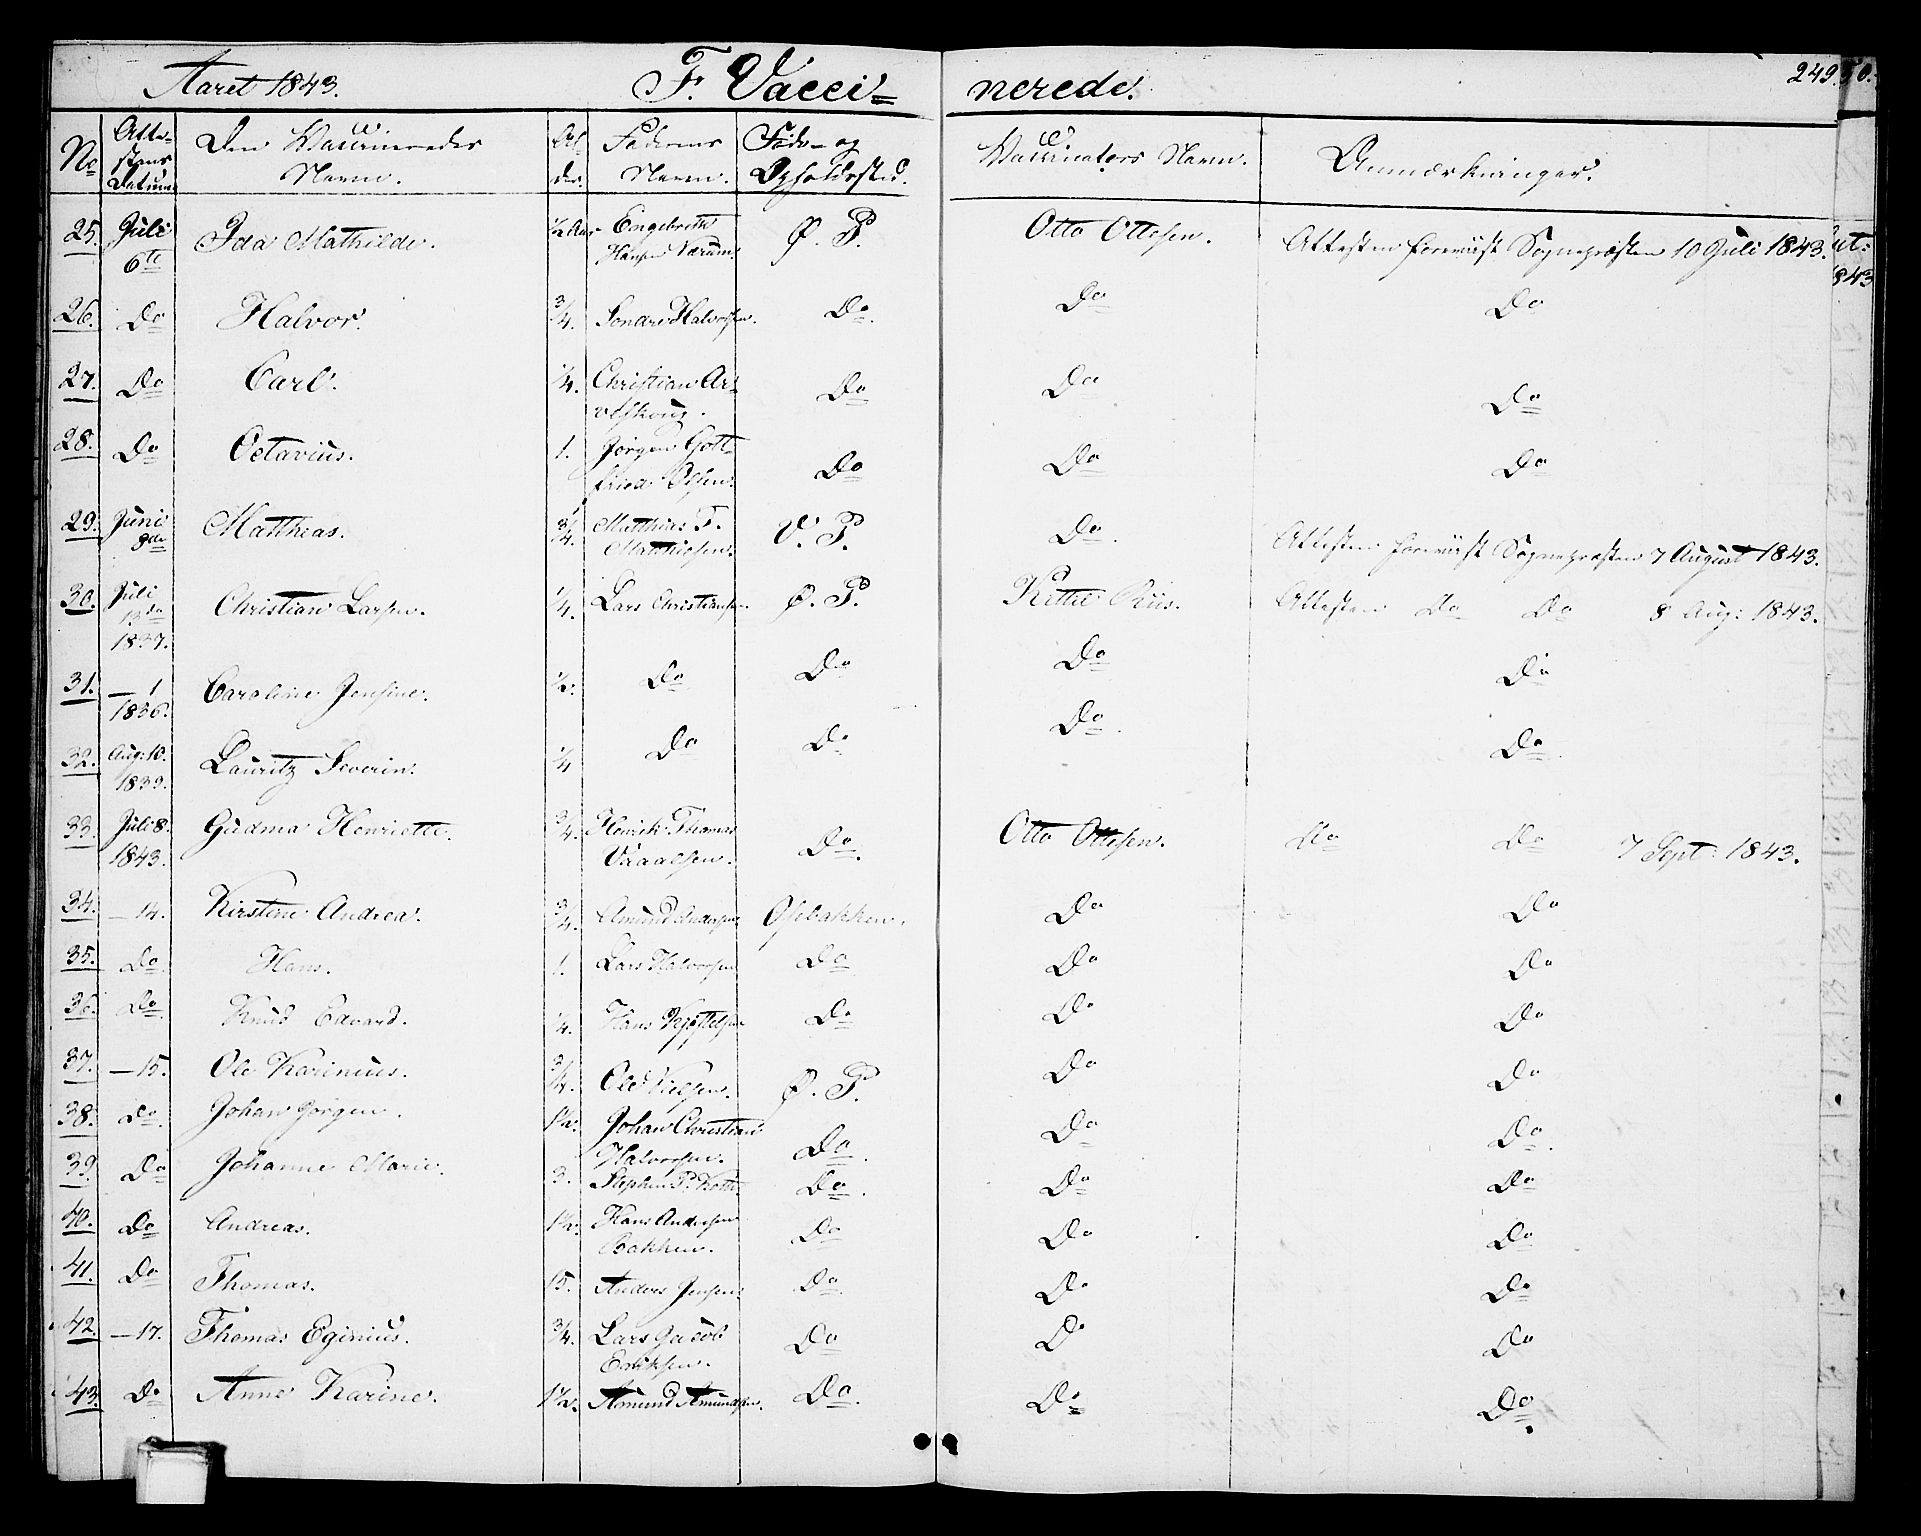 Aaret 1843. F. Vacci= nerede. 249.
No Atte- stens Datum Den Vaccineredes Navn. Al- der. Faderens Navn. Føde- og Opholdssted. Vaccinators Navn. Anmærkninger.
25. Juli 6te Ida Mathilde. 1/2 Aar Engebreth Hansen Værum. Ø. P. Otto Ottesen. Attesten foreviist Sognepræsten 10 Juli 1843.
26. Do Halvor. 3/4. Sondre Halvorsen. Do. Do Do
27. Do Carl. 1/4. Christian Do Do Do
28. Do Octavius. 1. Jørgen Gott- fried Olsen. Do Do Do
29. Juni 8de Matthias. 3/4. Matthias F. Matthiesen. V. P. Do. Attesten foreviist Sognepræsten 7 August 1843.
30. Juli 13de 1837. Christian Larsen. 1/4. Lars Christiansen. Ø. P. Kittil Riis. Attesten Do Do 8 Aug: 1843.
31. — 1 1836. Caroline Jensine. 1/2. Do Do Do Do
32. Aug: 10. 1839. Lauritz Severin. 1/4 Do Do Do. Do.
33. Juli 8. 1843. Gudma Henriette. 3/4. Henrich Thomas Do. Otto Ottesen. Do Do 7 Sept: 1843.
34. — 14. Kirstine Andrea. 3/4. Amund Andersen Osebakken. Do Do
35. Do. Hans. 1. Lars Halvorsen Do Do Do
36. Do Knud Edvard. 1/4. Hans Kjøstelsen Do Do Do
37. — 15. Ole Karinius. 3/4. Ole Nielsen. Ø. P. Do Do
38. Do. Johan Jørgen. 1 1/2. Johan Christian Halvorsen. Do. Do Do.
39. Do Johanne Marie. 3. Stephen P. Do. Do Do
40. Do Andreas. 1 1/2. Hans Andersen Bakken. Do Do Do
41. Do Thomas. 15. Anders Jensen. Do. Do Do
42. — 17. Thomas Eginius. 3/4. Lars Jacob Eriksen. Do Do Do
43. Do Anne Karine. 1 1/2. Amund Amundsen. Do. Do Do.